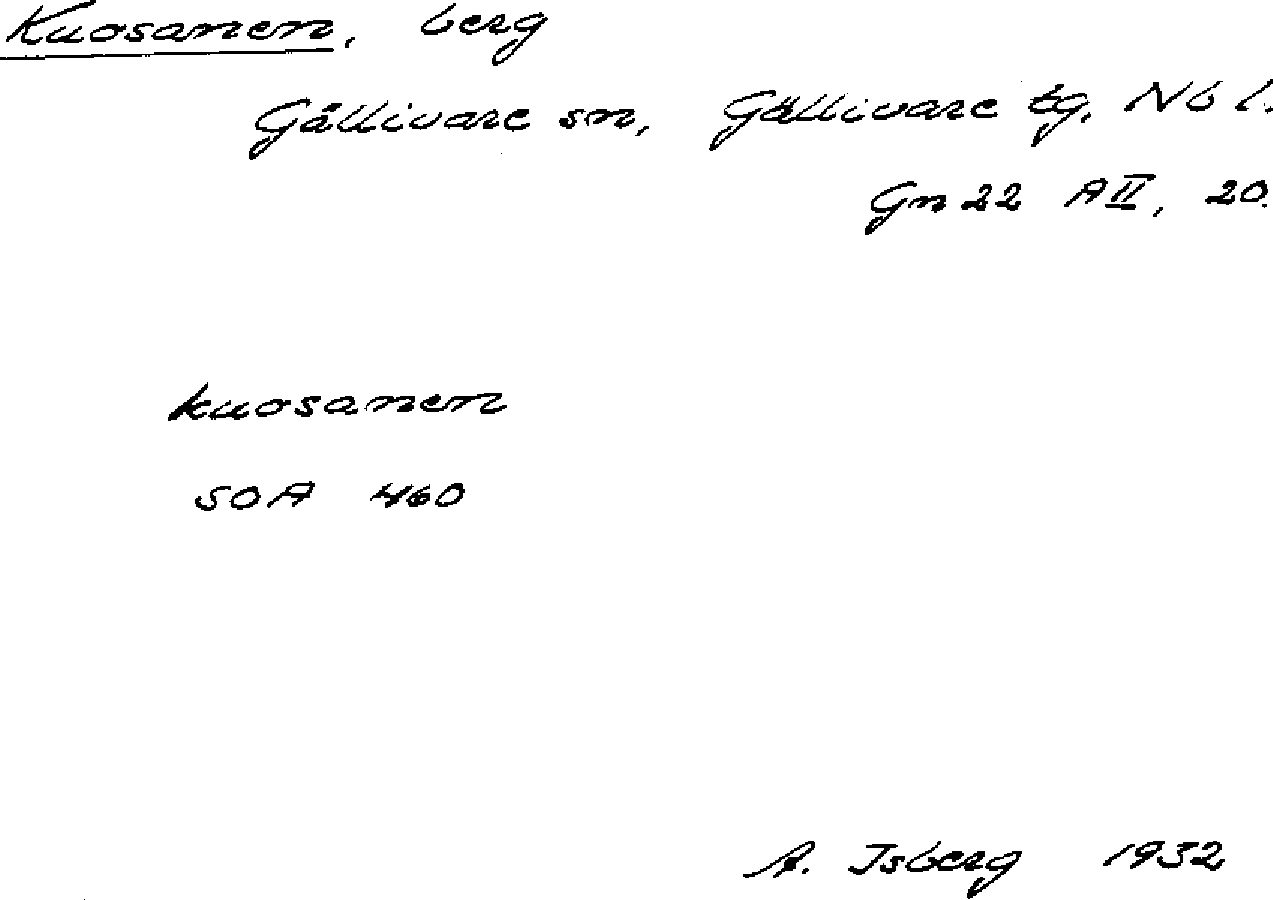 Kuosanen, berg
Gällivare sn, Gällivare tg, Nb l.
Gn 22 A II, 20.
kuosanen
SOA 460
A. Isberg 1932